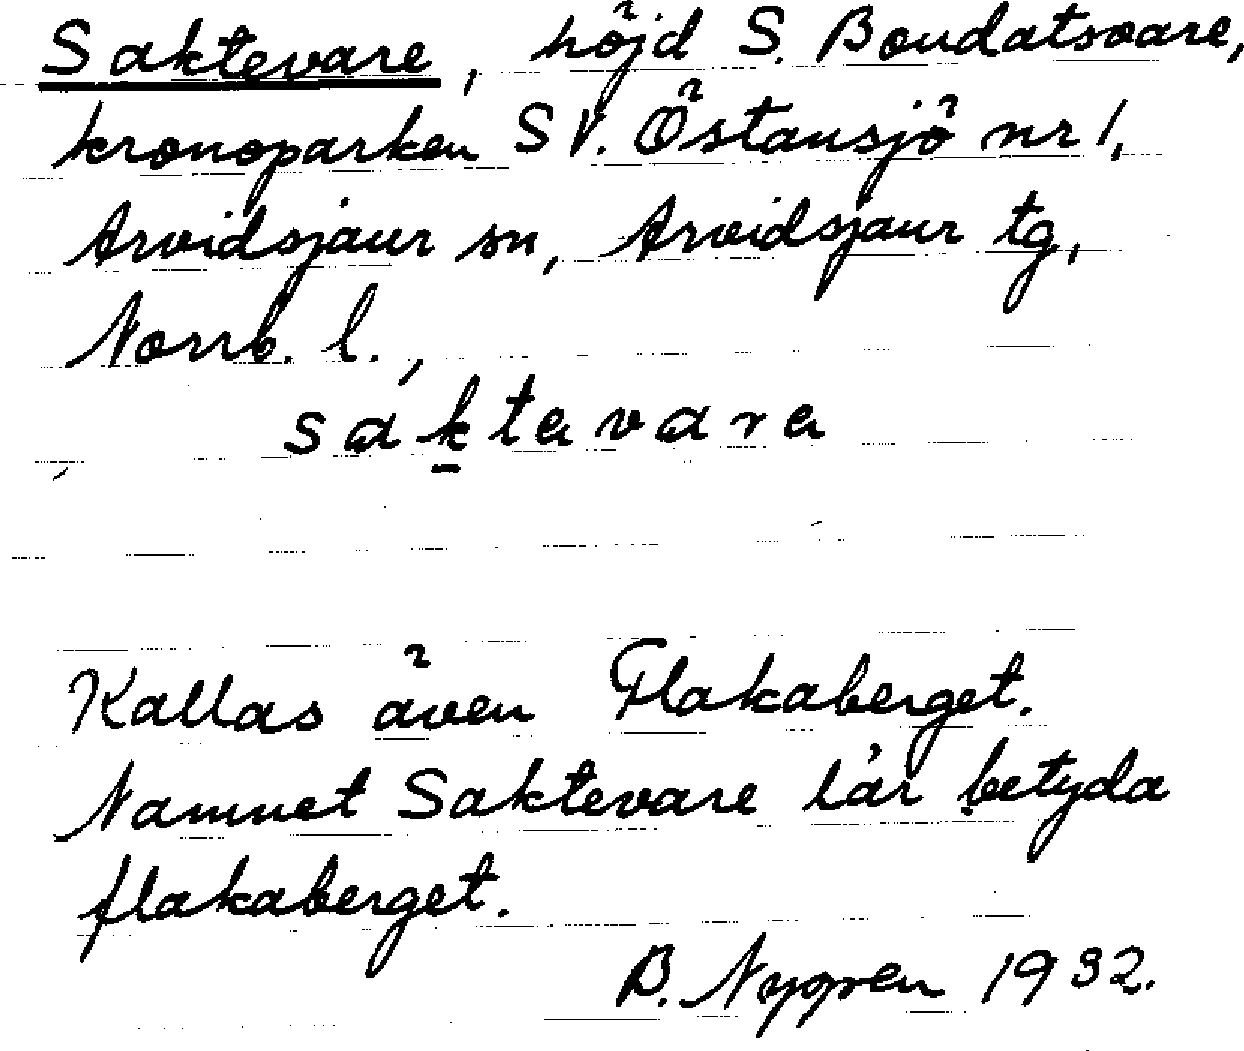 Saktevare, höjd S. Boudatsvare,
kronoparken SV. Östansjö nr 1,
Arvidsjaur sn, Arvidsjaur tg,
Norrb. l.,
sáktavara
Kallas även Flakaberget.
Namnet Saktevare lär betyda
flakaberget.
B. Nygren 1932.